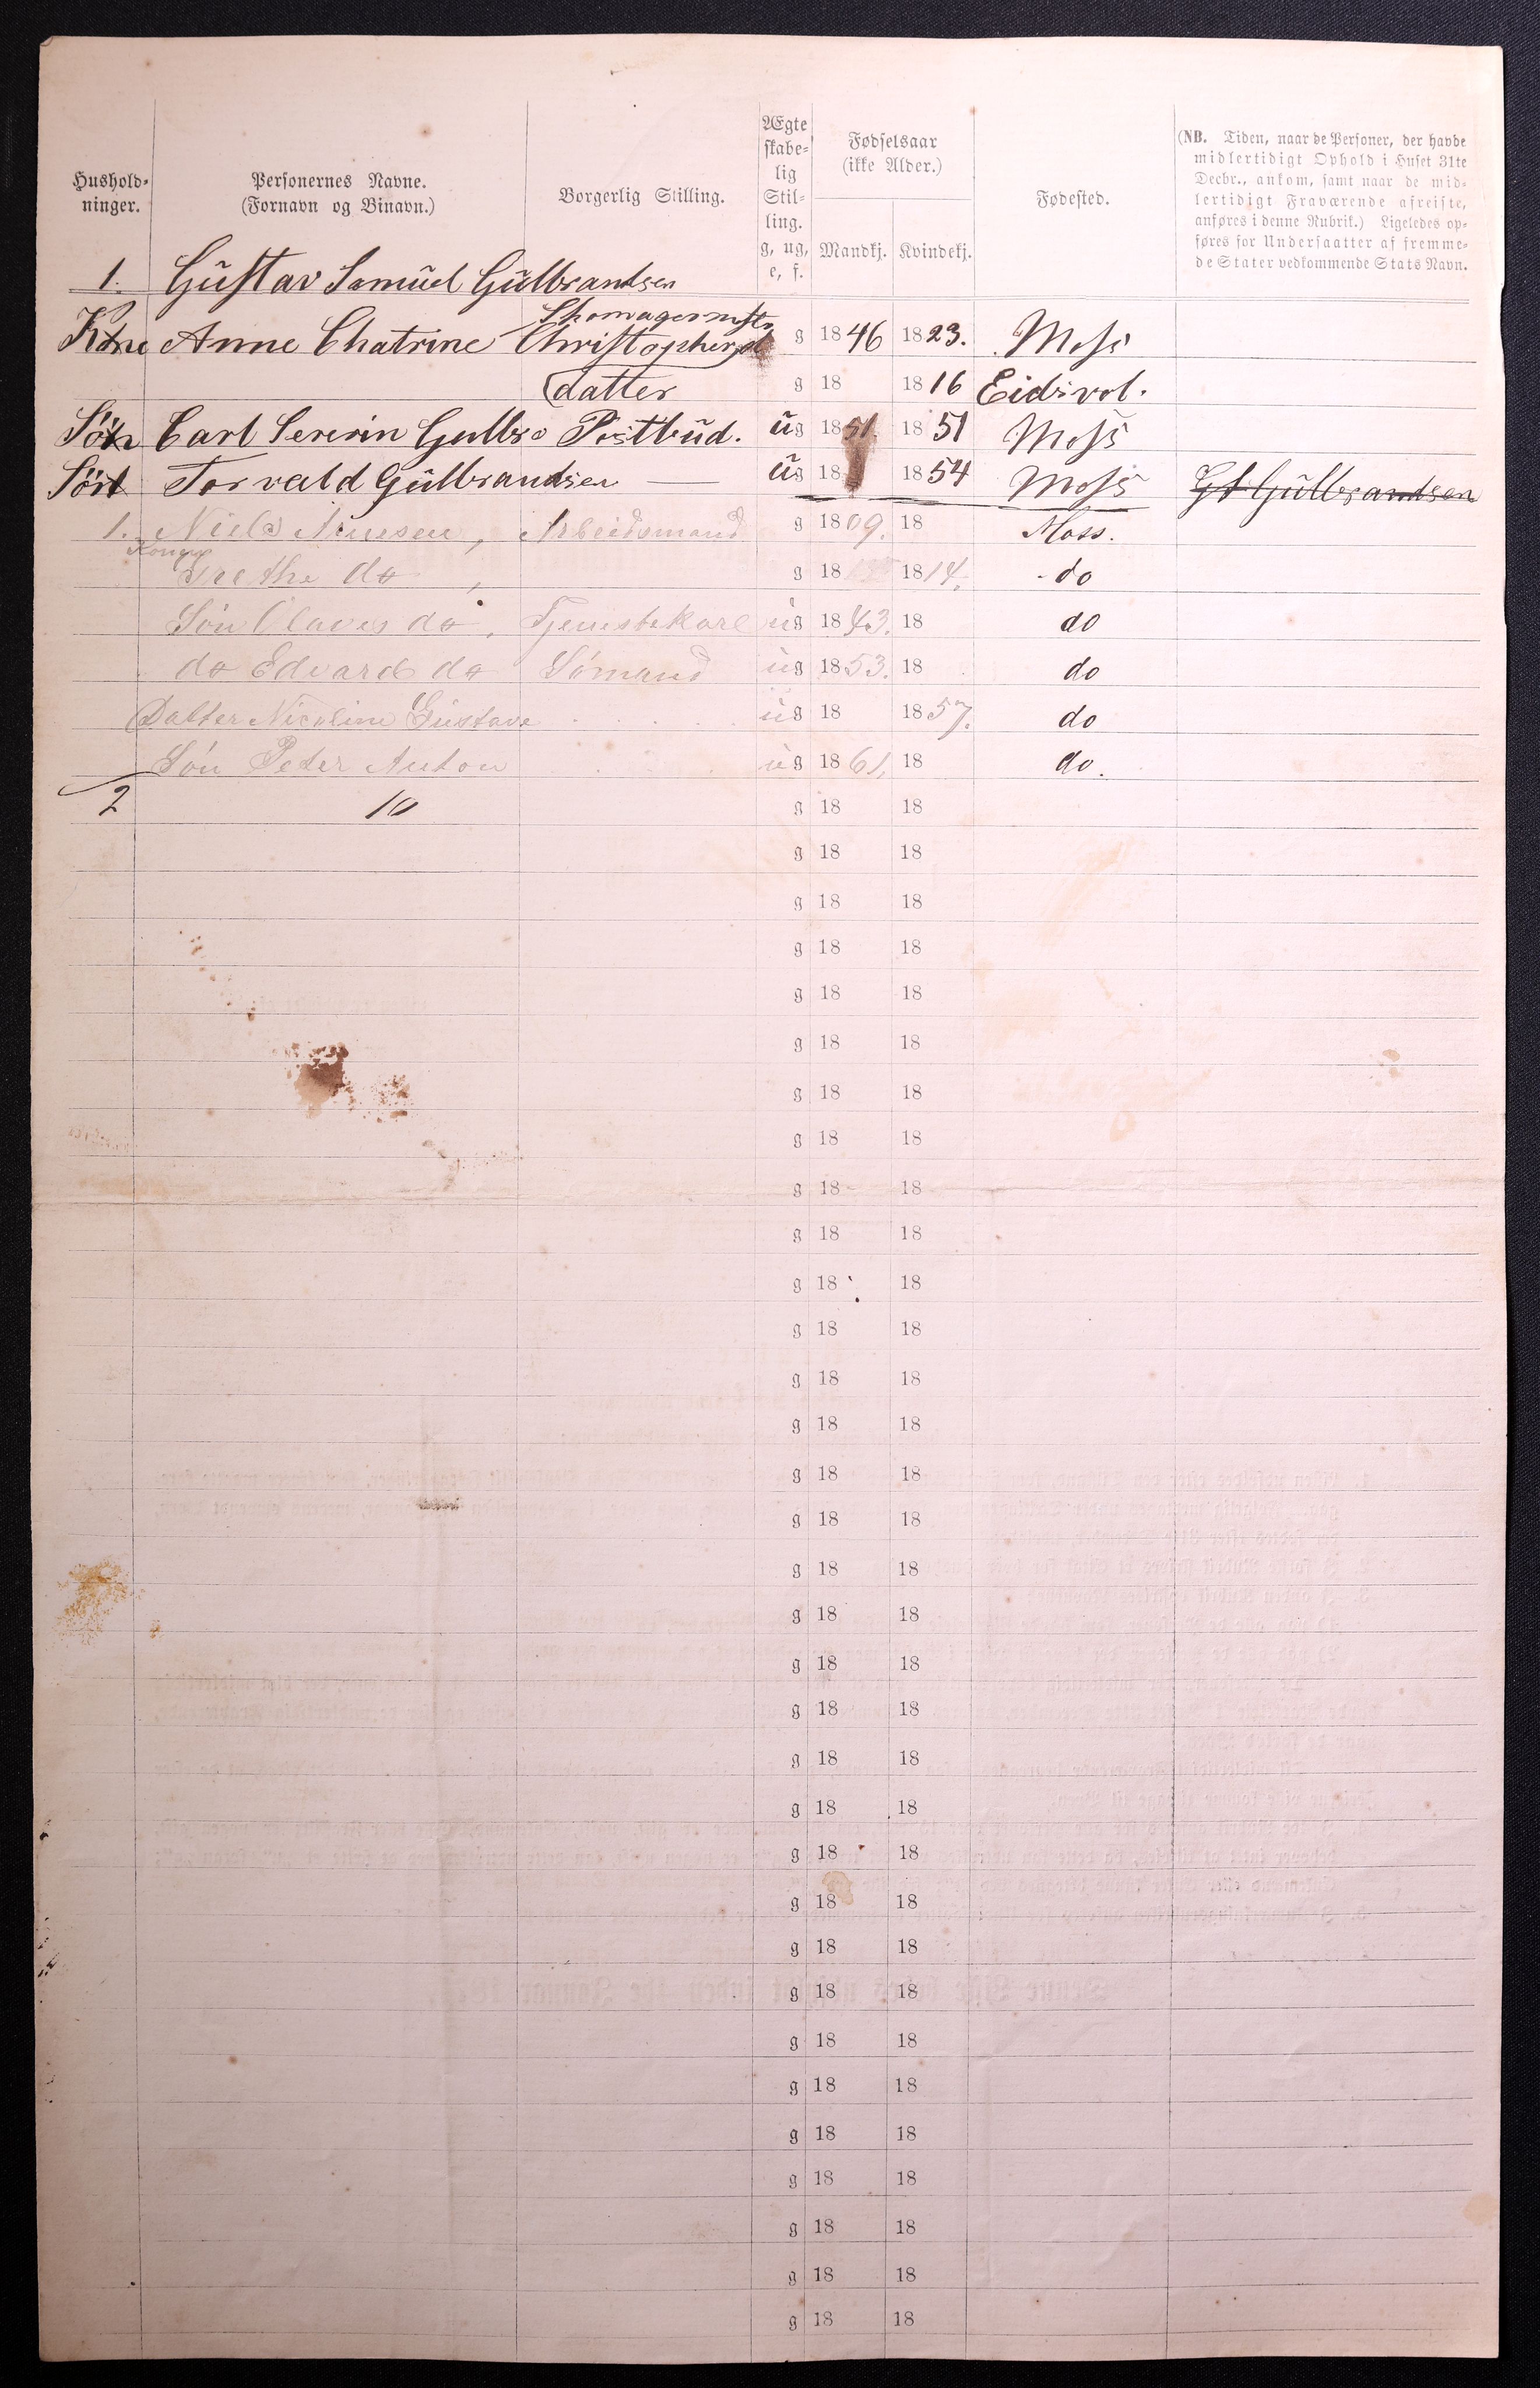 Hushold-
ninger.
Personernes Navne.
(Fornavn og Binavn.)
Borgerlig Stilling.
Ægte
skabe-
lig
Stil-
ling.
g, ug,
e, f.
Fødselsaar
(ikke Alder.)
Mandkj. Kvindekj.
Fødested.
(NB. Tiden, naar de Personer, der havde
midlertidigt Ophold i Huset 31te
Decbr., ankom, samt naar de mid-
lertidigt Fraværende afreiste,
anføres i denne Rubrik.) Ligeledes op-
føres for Undersaatter af fremme-
de Stater vedkommende Stats Navn.
1. Gustav Samuel Gulbrandsen
Kone Anne Chatrine Christophersd g 1846 1823. Moss
datter g 18 1816 Eidsvol.
Sön Carl Sererin Gulbr Postbud. ug 1851 1851 Moss
Sön Torvald Gulbrandsen — ug 18 1854 Moss Gulbrandsen
1. Niels , Arbeidsmand g 1809. 18 Moss.
Grethe do , g 18 1814. do
Søn Olaves do, Tjenestekarl ug 1843. 18 do
do Edvard do Sömand ug 1853. 18 do
Datter Nicoline Gustava ug 18 1857. do
Søn Peter Anton ug 1861, 18 do.
2 10 g 18 18
g 18 18
g 18 18
g 18 18
g 18 18
g 18 18
g 18 18
g 18 18
g 18 18
g 18 18
g 18 18
g 18 18
g 18 18
g 18 18
g 18 18
g 18 18
g 18 18
g 18 18
g 18 18
g 18 18
g 18 18
g 18 18
g 18 18
g 18 18
g 18 18
g 18 18
g 18 18
g 18 18
g 18 18
g 18 18
g 18 18
g 18 18
g 18 18